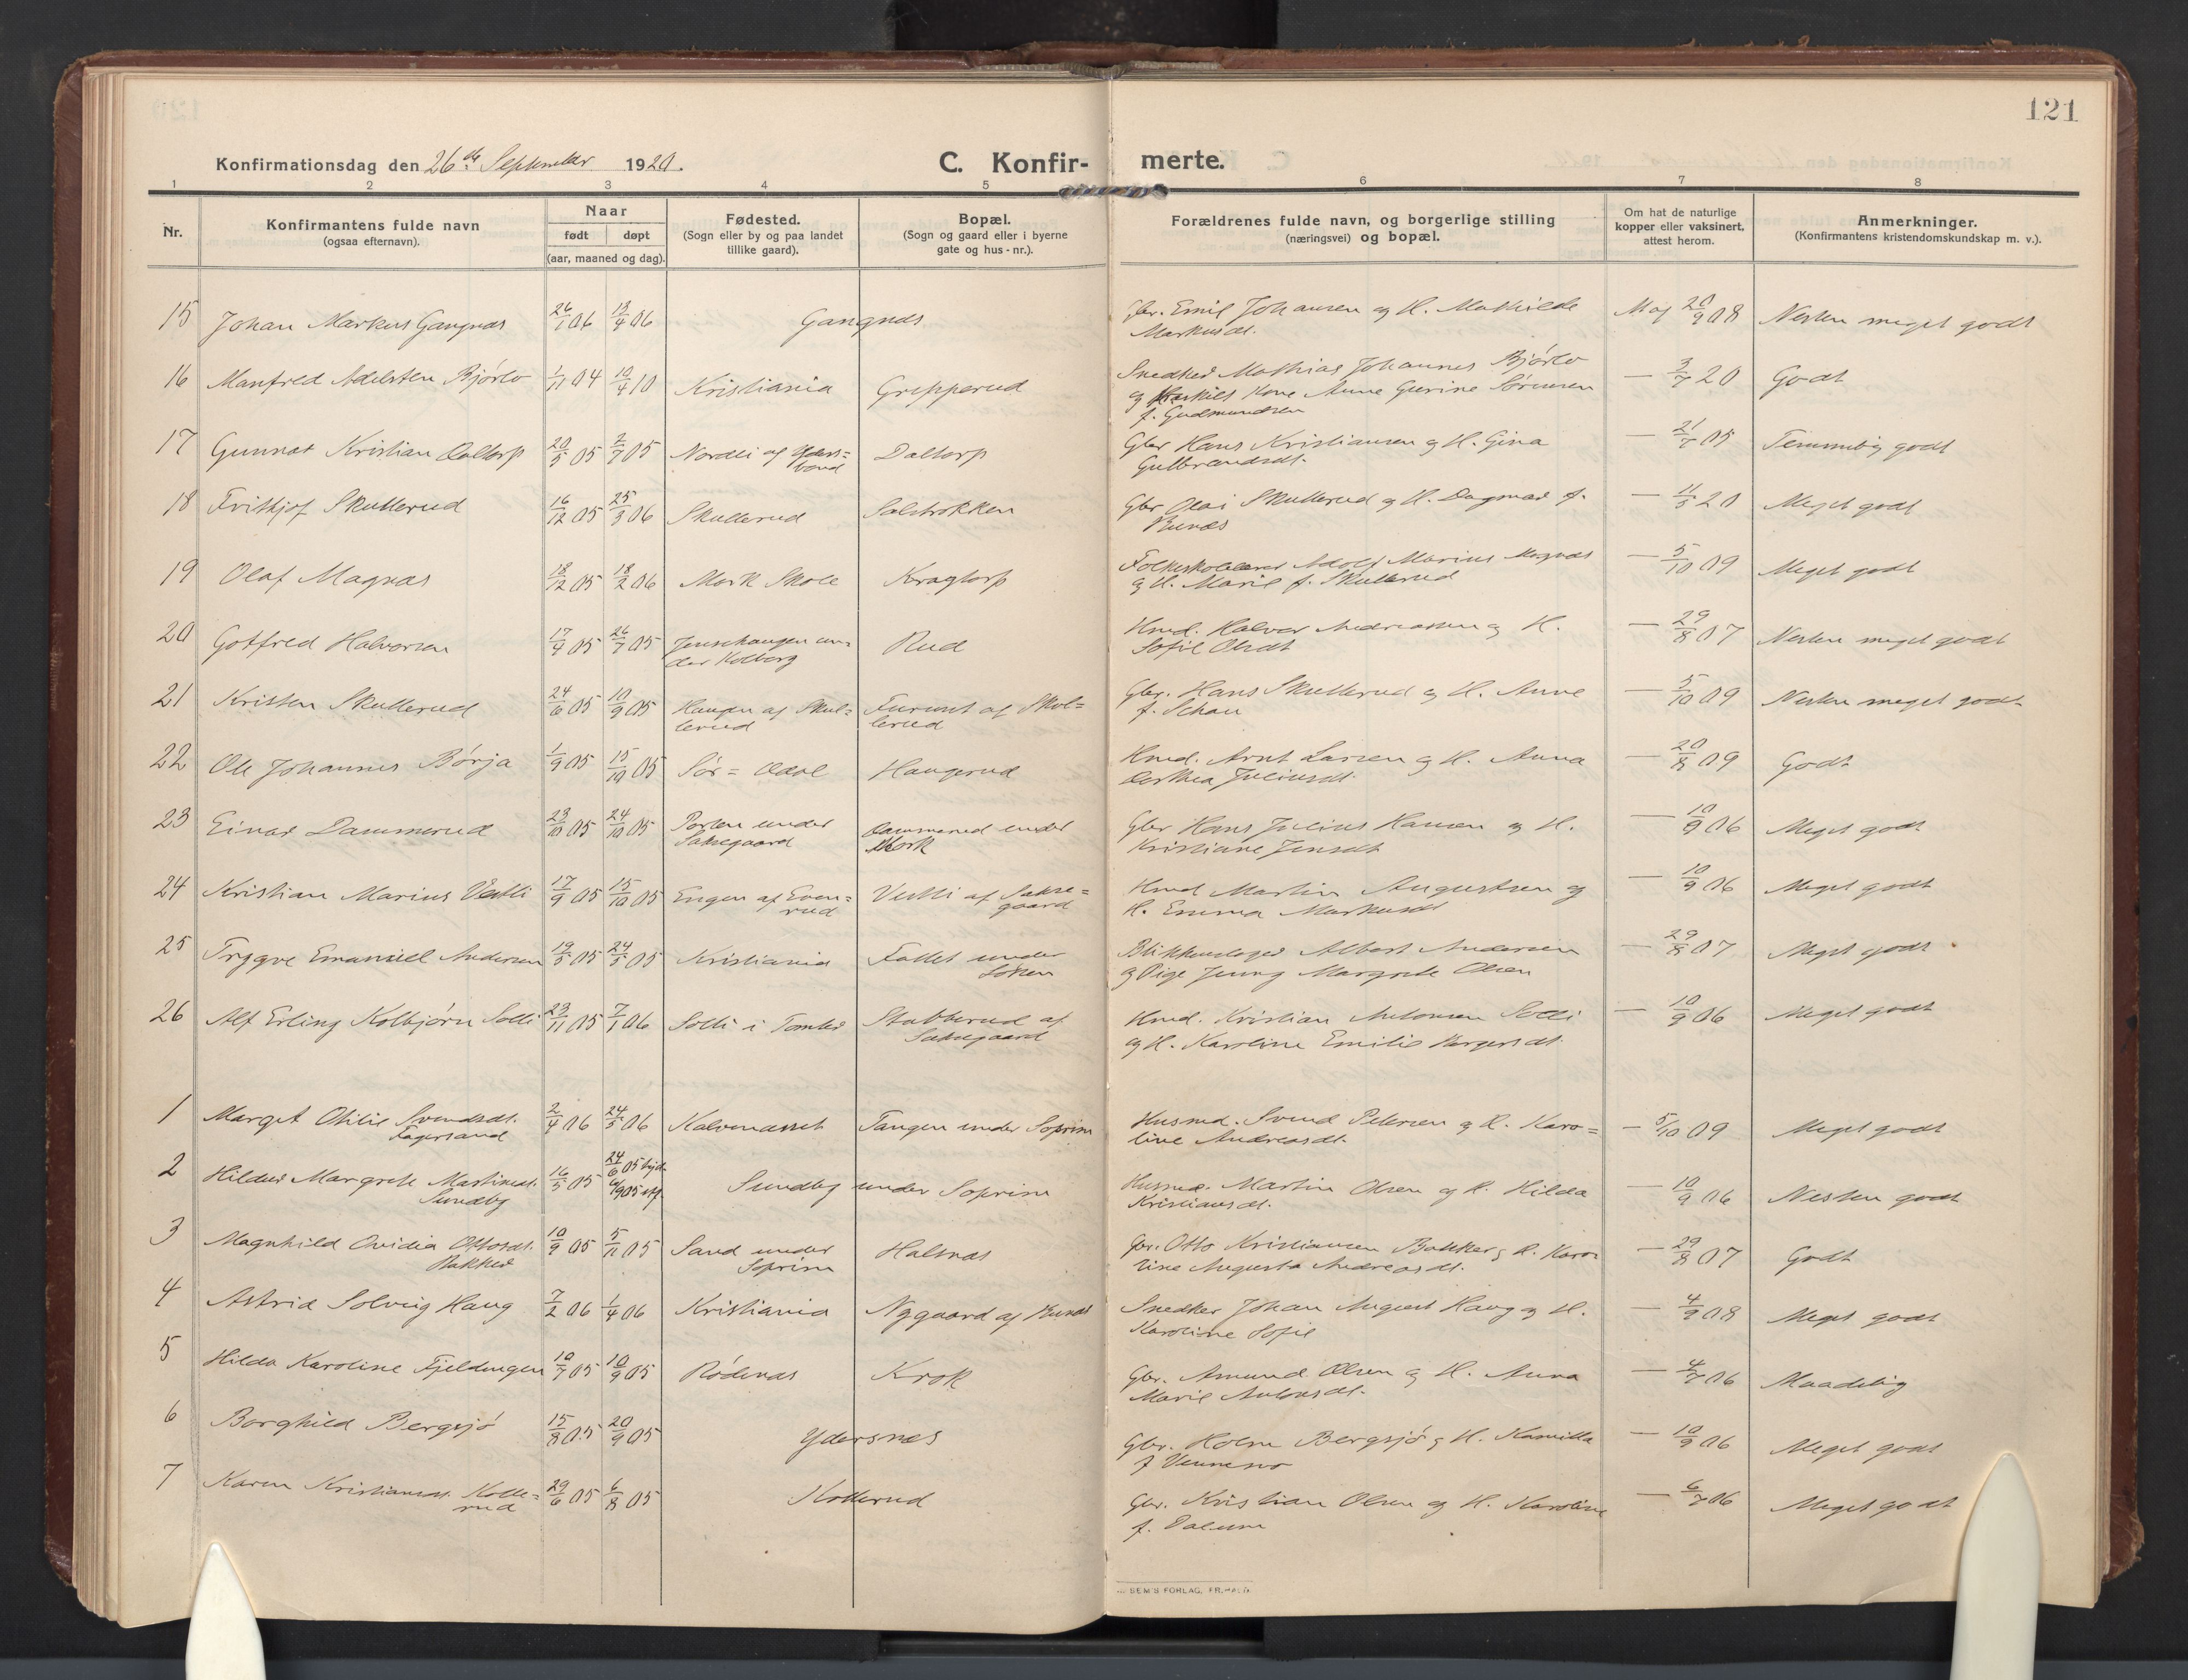 121
Konfirmationsdag den 26de September 1920.
C. Konfir- merte.
1 2 3 4 5 6 7 8
Nr.
Konfirmantens fulde navn
(ogsaa efternavn).
Naar
født døpt
(aar, maaned og dag).
Fødested.
(Sogn eller by og paa landet
tillike gaard).
Bopæl.
(Sogn og gaard eller i byerne
gate og hus-nr.).
Forældrenes fulde navn, og borgerlige stilling
(næringsvei) og bopæl.
Om hat de naturlige
kopper eller vaksinert,
attest herom.
Anmerkninger.
(Konfirmantens kristendomskundskap m. v.).
15 Johan Markus Gangnæs 26/1 06 13/4 06 Gangnæs Gbr. Emil Johansen og H. Mathilde
Markusdt. 20/9 08 Nesten meget godt
16 Manfred Adelsten Bjørlo 1/11 04 10/4 10 Kristiania Gripperud Snedker Mathias Johannes Bjørlo
og Kone Anne Gurine Sørensen
f. Gudmundsen — 3/7 20 Godt
17 Gunnar Kristian Daltorp 20/5 05 2/7 05 Nordli af
Daltorp Gbr Hans Kristiansen og H. Gina
Gulbrandsdt. — 21/7 05 Temmelig godt
18 Frithjof Skullerud 16/12 05 25/3 06 Skullerud Salstrokken Gbr Olai Skullerud og H. Dagmar f.
Bunæs — 11/5 20 Meget godt
19 Olaf Magnæs 18/12 05 18/2 06 Mork Skole Kragtorp Folkeskolelærer Adolf Marius Magnæs
og H. Marie f. Skullerud — 5/10 09 Meget godt
20 Gotfred Halvorsen 17/4 05 26/7 05 Jenschaugen un-
der Kolborg Rud Hmd. Halvor Andreassen og H.
Sofie Olsdt — 29/8 07 Nesten meget godt
21 Kristen Skullerud 24/6 05 10/9 05 Haugen af Skul=
lerud Furunt af Skul=
lerud Gbr. Hans Skullerud og H. Anne
f. Schau — 5/10 09 Nesten meget godt
22 Ole Johannes Børja 1/9 05 15/10 05 Sør=Odal Haugerud Hmd. Arnt Larsen og H. Anna
Dorthea Juliusdt. — 20/8 09 Godt
23 Einar Dammerud 23/10 05 24/10 05 Porten under
Saksegaard Dammerud under
Mork Gbr Hans Julius Hansen og H.
Kristiane Jensdt — 10/9 06 Meget godt
24 Kristian Marius Vestli 17/9 05 15/10 05 Engen af Even=
rud Vestli af Sakse=
gaard Hmd Martin Augustsen og
H. Emma Markusdt — 10/9 06 Meget godt
25 Trygve Emanuel Andersen 19/5 05 24/5 05 Kristiania Fallet under
Soken Blikkenslager Albert Andersen
og Pige Jenny Margrete Olsen — 29/8 07 Meget godt
26 Alf Erling Kolbjørn Solli 23/11 05 7/1 06 Solli i Tomter Stabberud af
Saksegaard Hmd. Kristian Antonsen Solli
og H. Karoline Emilie — 10/9 06 Meget godt
1 Marget Otilie Svendsdt.
Fagersand 2/4 06 24/5 06 Kalvenæsset Tangen under Soprim Husmd. Svend Petersen og H. Karo=
line Andreasdt. — 5/10 09 Meget godt
2 Hildur Margrete Martinsdt.
Sundby 16/5 05 24/6 05 hjd. Sundby under Soprim Husmd. Martin Olsen og H. Hilda
Kristiansdt. — 10/9 06 Nesten godt
3 Magnhild Ovidia Ottosdt.
Bakker 10/9 05 5/11 05 Sand under
Soprim Halsnæs Gbr. Otto Kristiansen Bakker og H. Karo=
line Augusta Andreasdt. — 29/8 07 Godt
4 Astrid Solveig Haug 7/2 06 1/4 06 Kristiania Nygaard af Bunæs Snedker Johan August Haug og H.
Karoline Sofie — 4/9 08 Meget godt
5 Hilda Karoline Fjeldengen 10/7 05 10/9 05 Rødenæs Krok Gbr. Amund Olsen og H. Anna
Marie Antonsdt. — 4/7 06 Maadelig
6 Borghild Bergsjø 15/8 05 20/9 05 Ydersnes Gbr. Holm Bergsjø og H. Kamilla
f. — 10/9 06 Meget godt
7 Karen Kristiansdt. Kolle=
rud 29/6 05 6/8 05 Kollerud Gbr. Kristian Olsen og H. Karoline
f. Dalum — 6/7 06 Meget godt
SEM'S FORLAG, FR.HALD